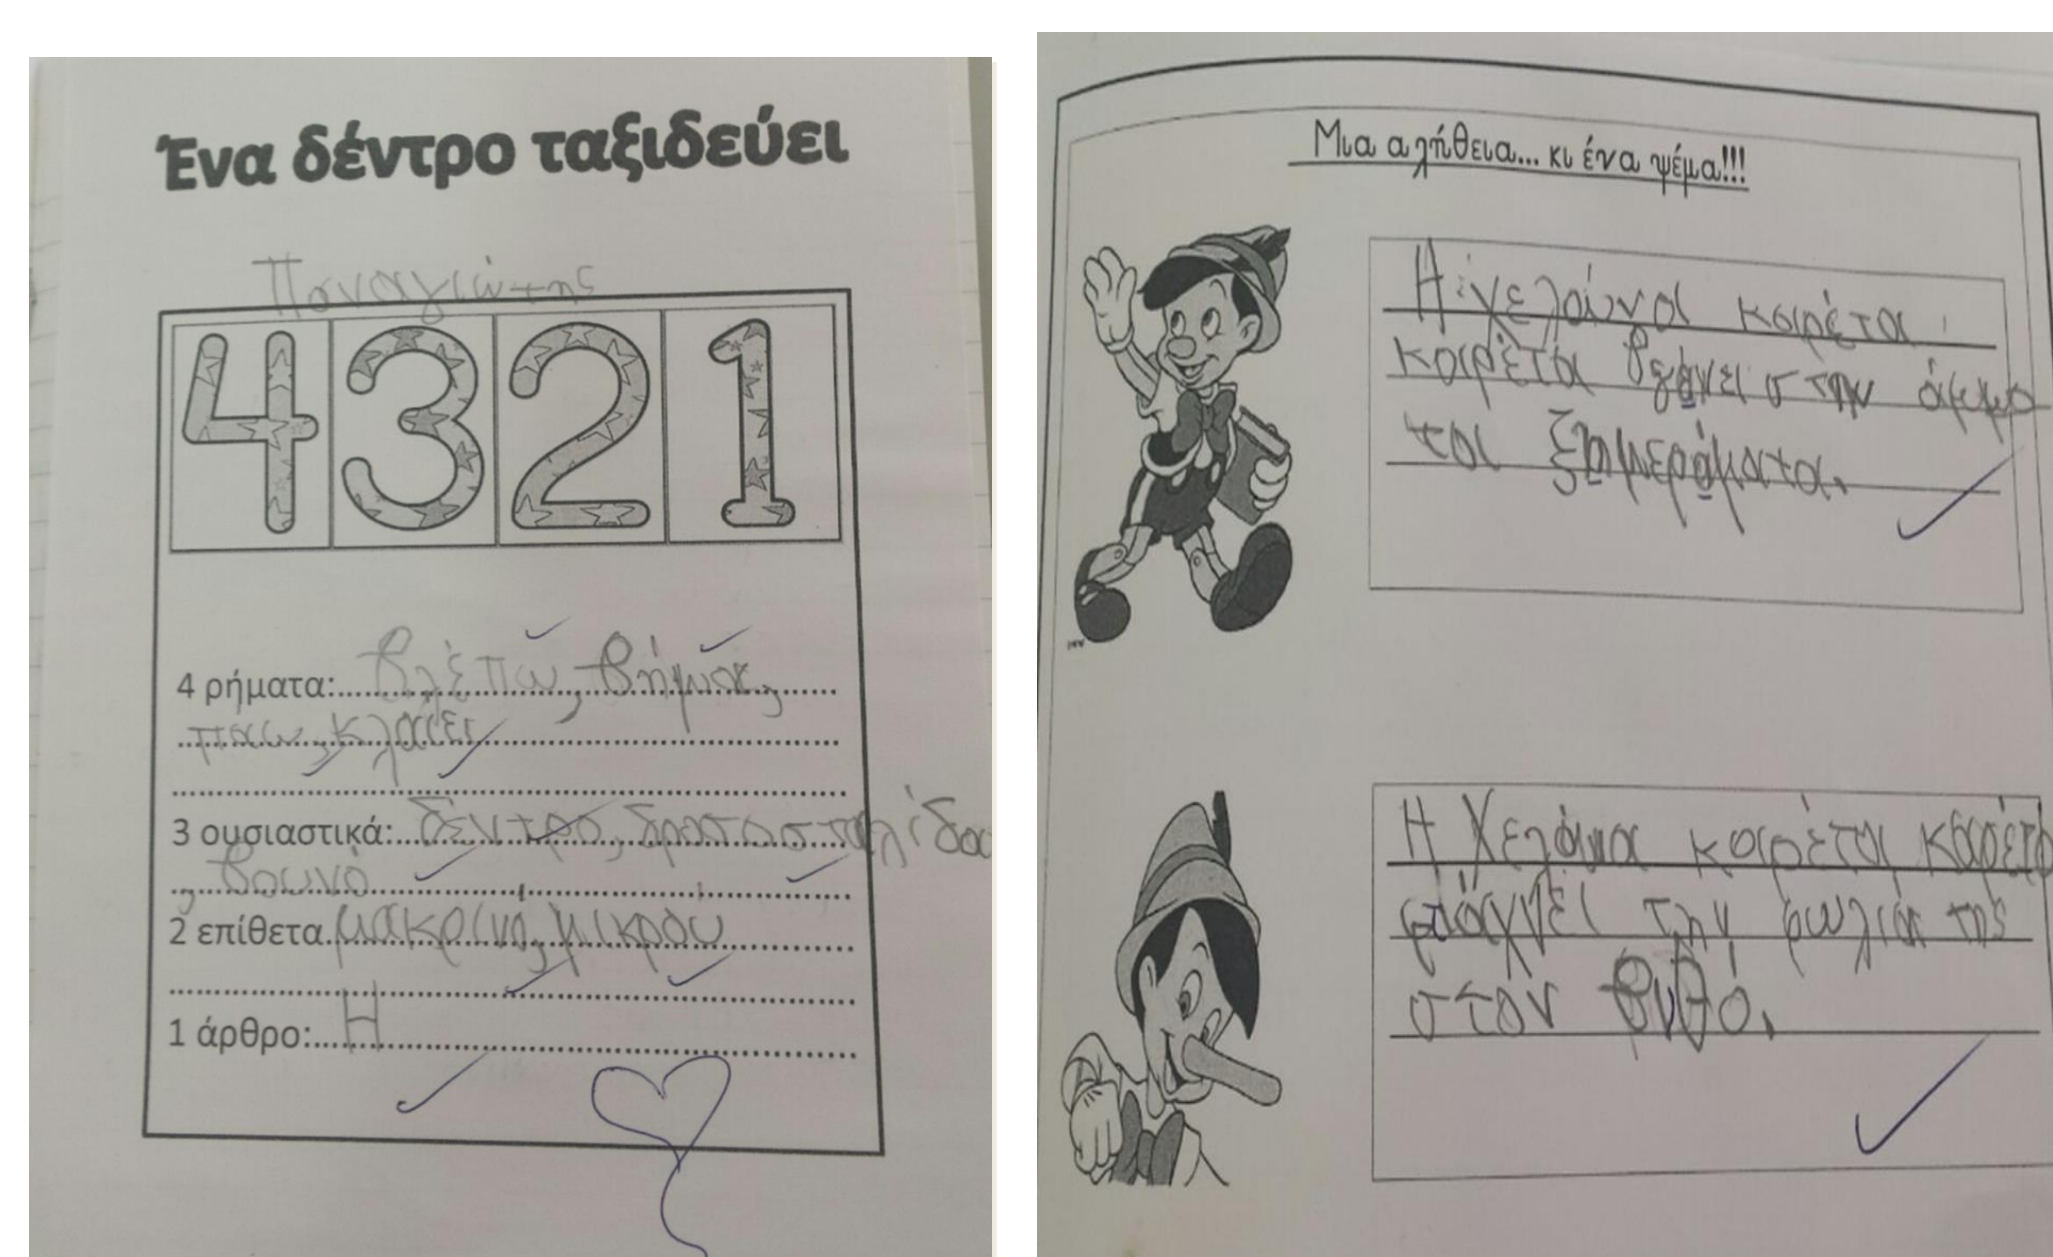 Ένα δέντρο ταξιδεύει
Παναγιώτης
4 3 2 1
4 ρήματα: βλέπω, θήμωσε,
παω, κλαίει
3 ουσιαστικά: δέντρο, δροσοσταλίδα
, βουνό
2 επίθετα μακρίνό, μικρού
1 άρθρο: Η
Μια αλήθεια... κι ένα ψέμα!!!
Η χελώνα καρέτα
καρέτα βγάνει στην άμμο
τα ξημερώματα.
Η Χελώνα καρέτα καρέτα
φτιάχνει την φωλιά της
στον βυθό.